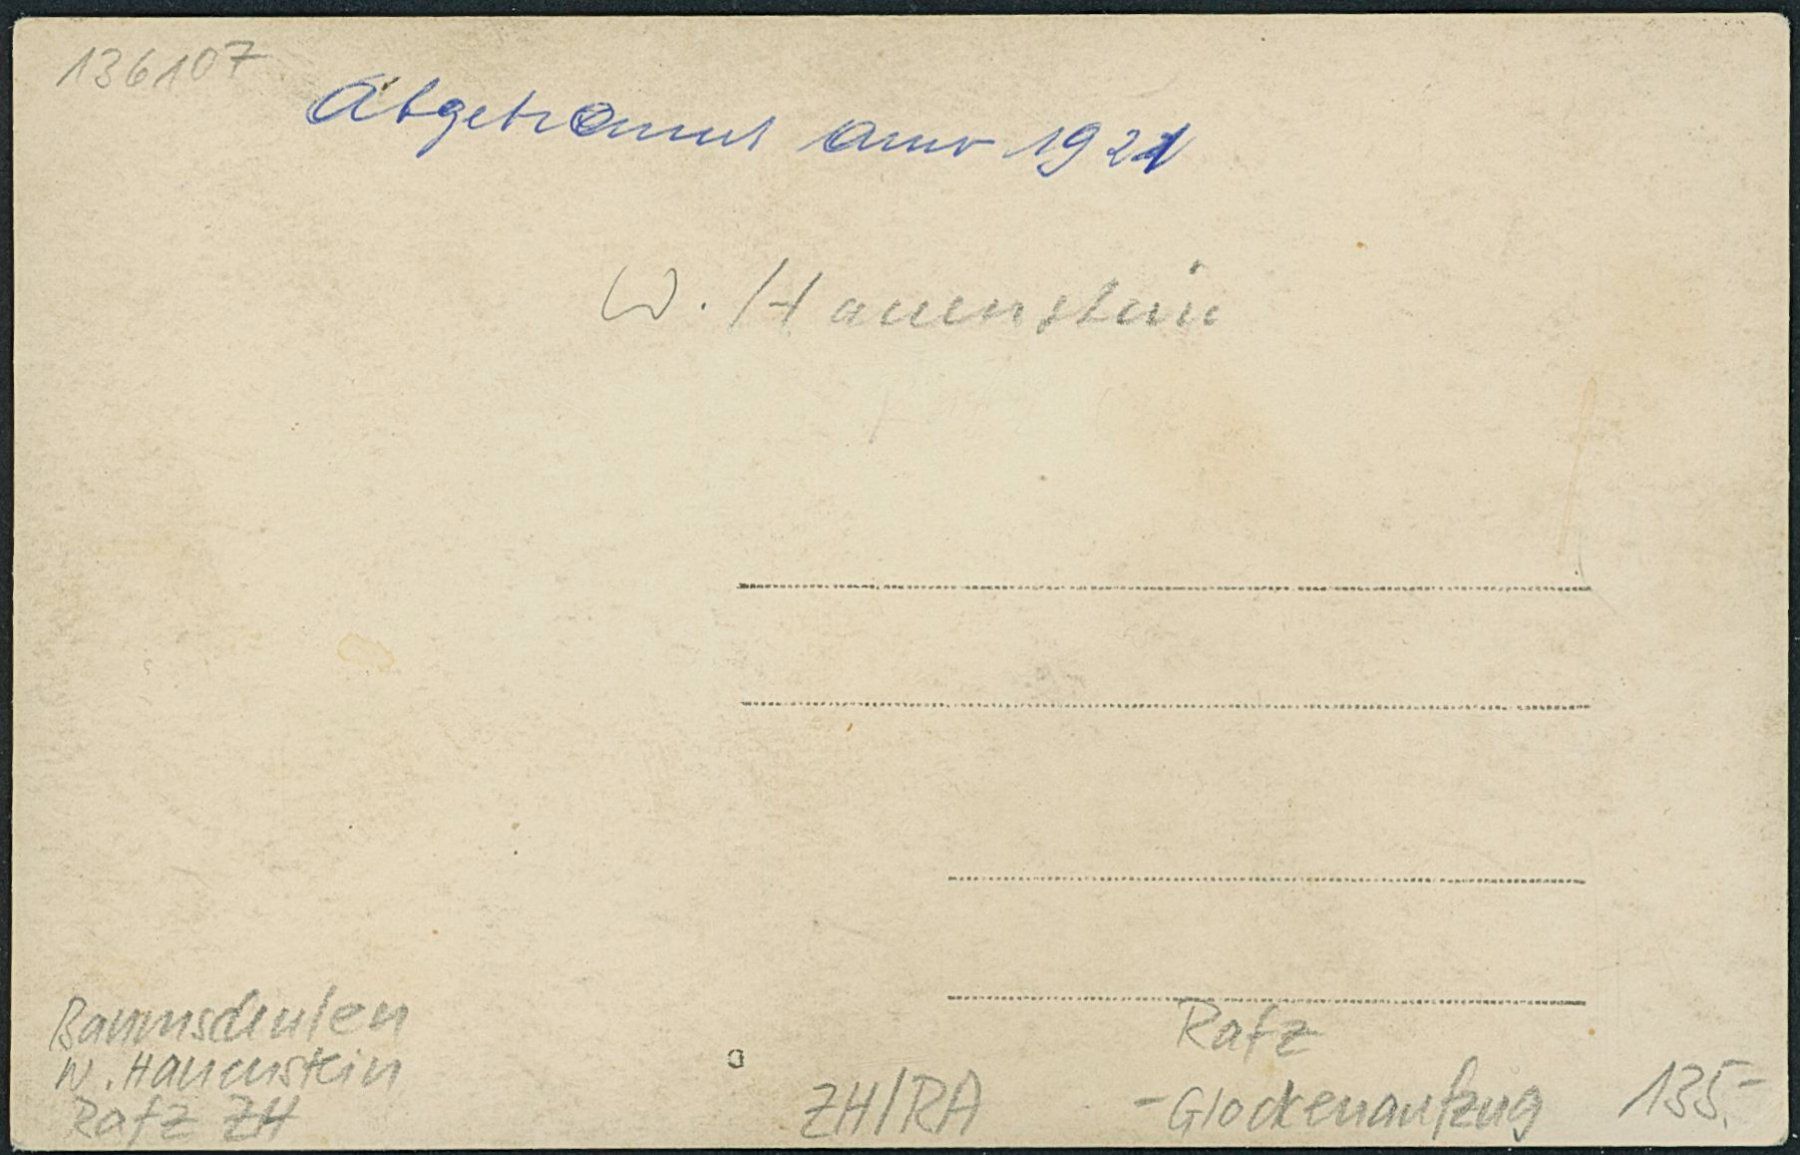 136107
Abgebrannt anno 1921
W. Hauenstein
Baumschulen
W. Hauenstein
Rafz ZH
ZH/RA
Rafz
- Glockenaufzug
135.-